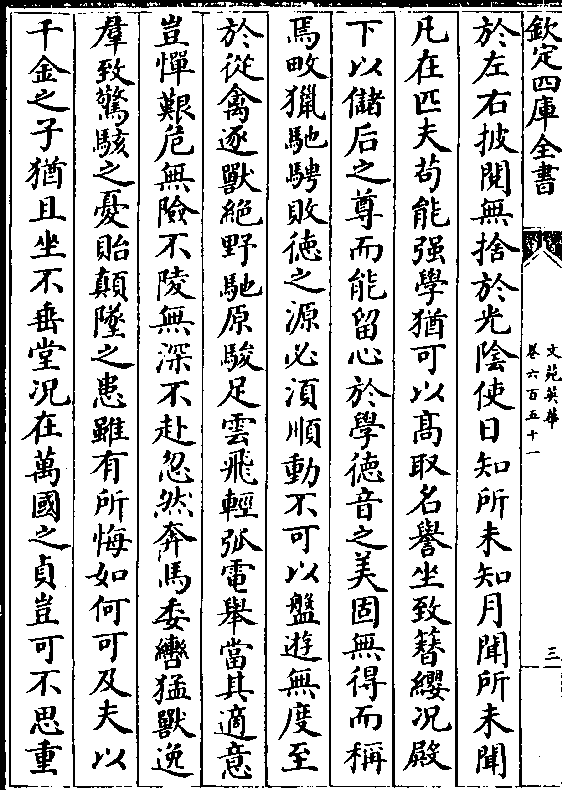 欽定四庫全書
文苑英華
卷六百五十一
三
於左右披閱無捨於光陰使日知所未知月聞所未聞
凡在匹夫苟能强學猶可以髙取名譽坐致簮纓况殿
下以儲后之尊而能留心於學徳音之美固無得而稱
焉畋獵馳騁敗徳之源必湏順動不可以盤遊無度至
於從禽逐獸絶野馳原駿足雲飛輕弧電舉當其適意
豈憚艱危無險不陵無深不赴忽然奔馬委轡猛獸逸
羣致驚駭之憂貽顛墜之患雖有所悔如何可及夫以
千金之子猶且坐不垂堂况在萬國之貞豈可不思重